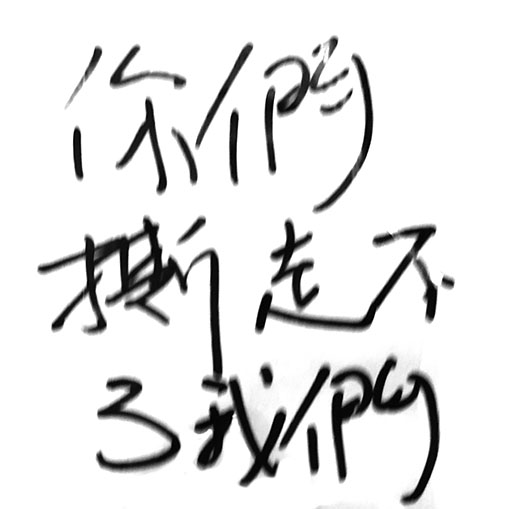 你們
撕走不
了我們